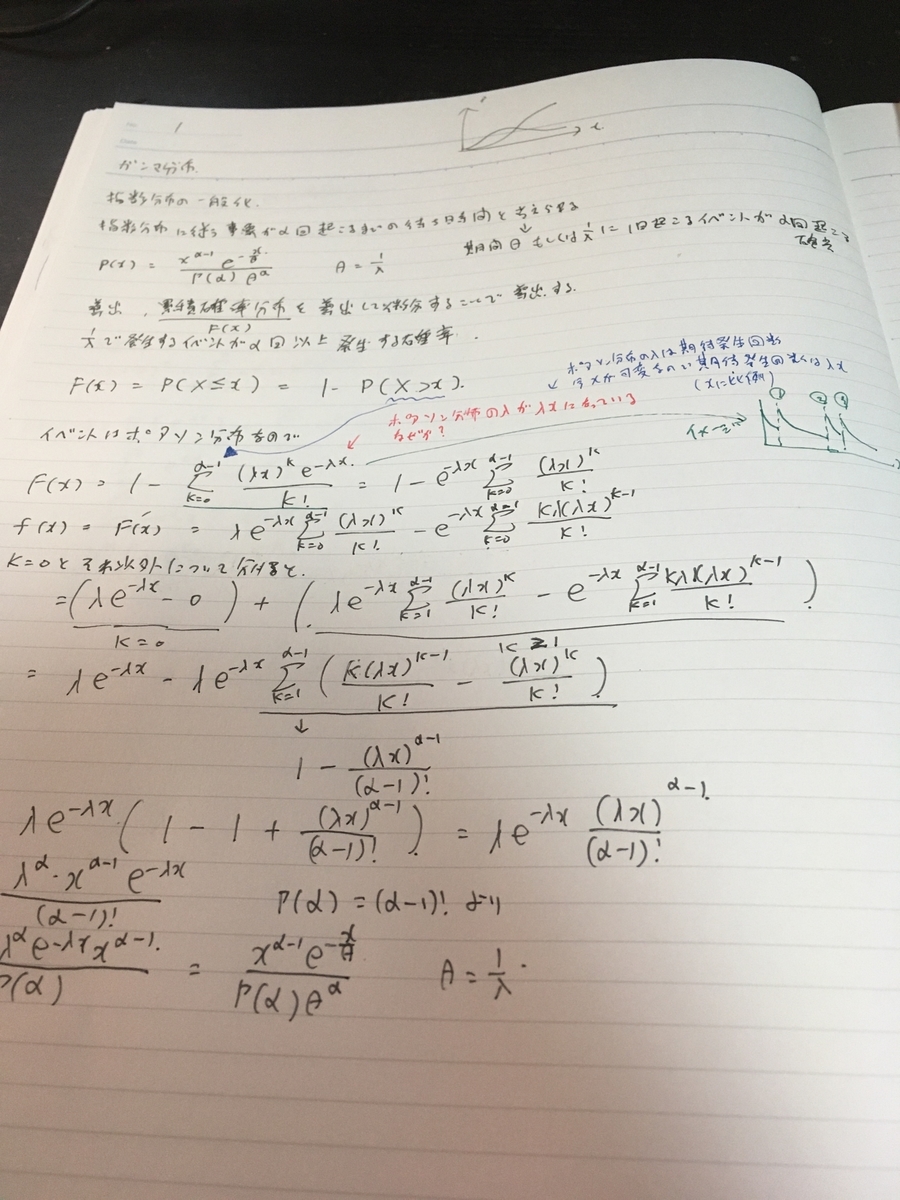 1
x
ガンマ分布.
指数分布の一般化.
指数分布に従う事象がα回起こるまでの待ち時間と考えられる
期間θもしくは 1/λ に1回起こるイベントがα回起こる確率
P(x) = x^{α-1} e^{-x/θ} / Γ(α) θ^α   θ = 1/λ
導出. 累積確率分布を導出して微分することで導出する.
F(x)
1/λ で発生するイベントがα回以上発生する確率.
ポアソン分布のλは期待発生回数
今xが可変なので期待発生回数はλx
(xに比例)
F(x) = P(X ≤ x) = 1 - P(X > x).
ポアソン分布のλがλxになっている
なぜ?
イメージ
イベントはポアソン分布なので
F(x) = 1 - Σ_{k=0}^{α-1} (λx)^k e^{-λx} / k! = 1 - e^{-λx} Σ_{k=0}^{α-1} (λx)^k / k!
f(x) = F'(x) = λe^{-λx} Σ_{k=0}^{α-1} (λx)^k / k! - e^{-λx} Σ_{k=0}^{α-1} kλ(λx)^{k-1} / k!
k=0とそれ以外について分けると.
= (λe^{-λx} - 0) + (λe^{-λx} Σ_{k=1}^{α-1} (λx)^k / k! - e^{-λx} Σ_{k=1}^{α-1} kλ(λx)^{k-1} / k!)
k=0
k≥1
= λe^{-λx} - λe^{-λx} Σ_{k=1}^{α-1} (k(λx)^{k-1} / k! - (λx)^k / k!)
↓
1 - (λx)^{α-1} / (α-1)!
λe^{-λx} (1 - 1 + (λx)^{α-1} / (α-1)!) = λe^{-λx} (λx)^{α-1} / (α-1)!
λ^α · x^{α-1} e^{-λx} / (α-1)!   Γ(α) = (α-1)! より
λ^α e^{-λx} x^{α-1} / Γ(α) = x^{α-1} e^{-x/θ} / Γ(α) θ^α   θ = 1/λ.